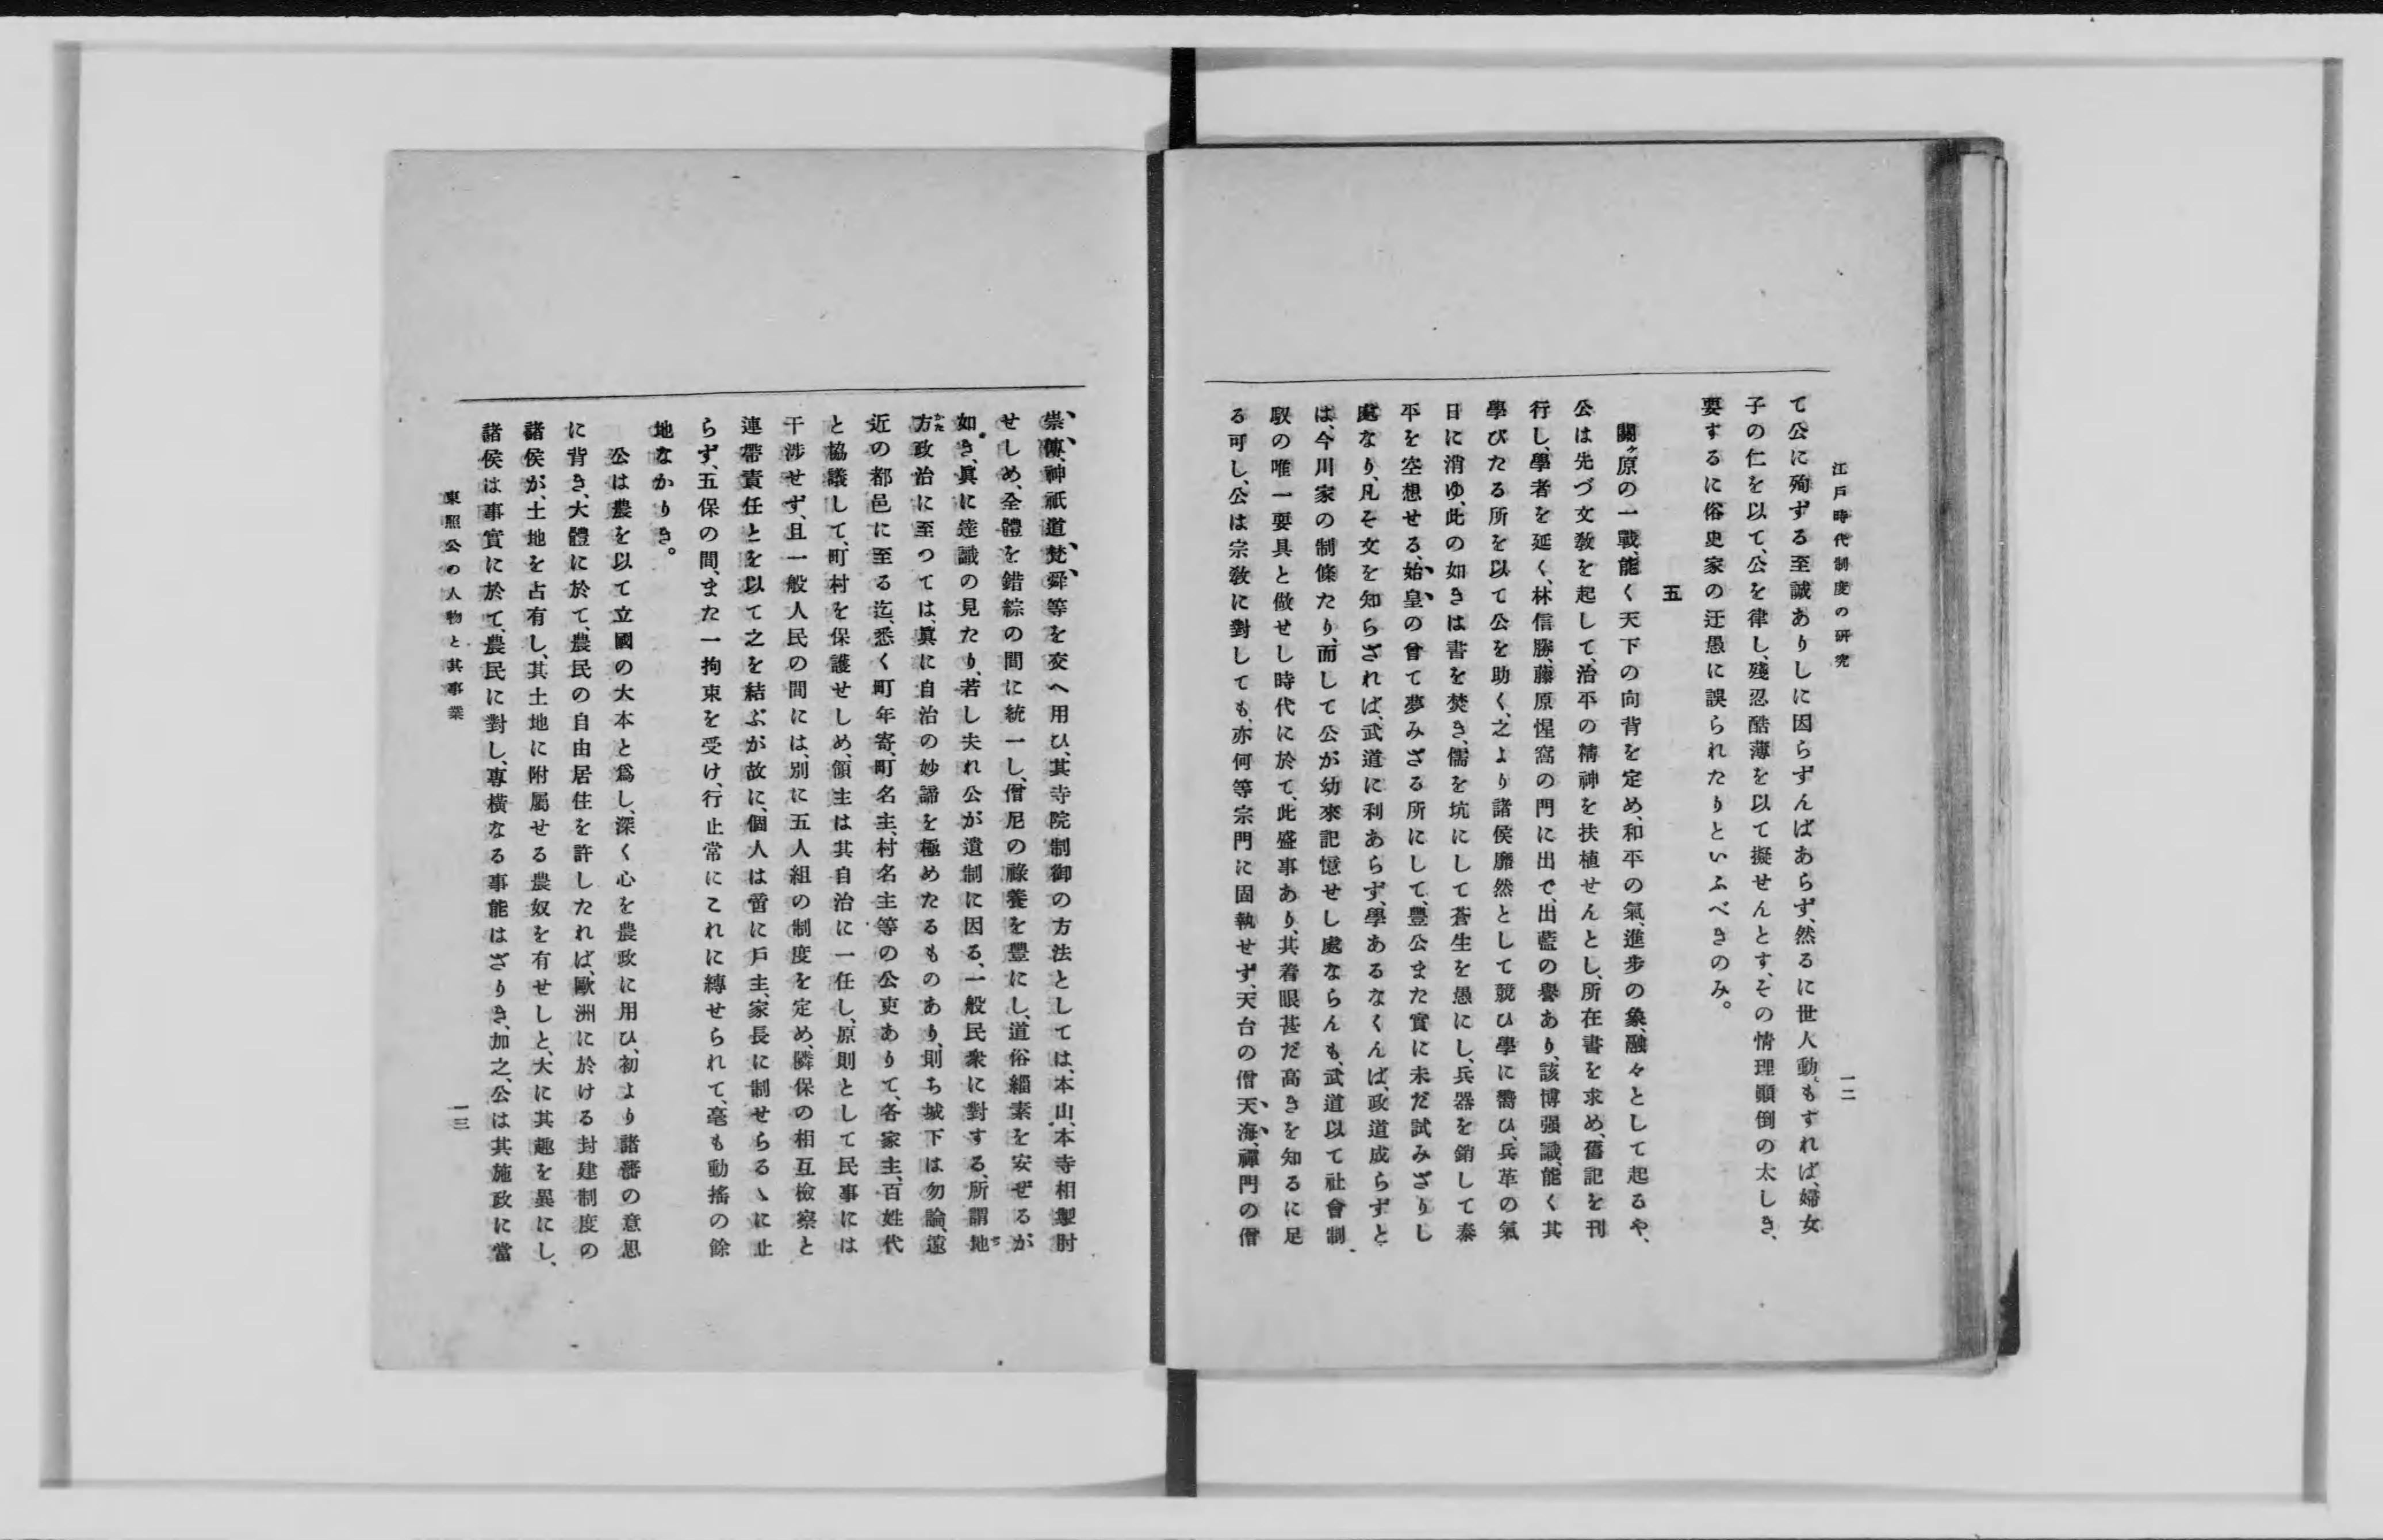 江戸時代制度の研究
一二
て公に殉ずる至誠ありしに因らずんばあらず、然るに世人動もすれば、婦女
子の仁を以て、公を律し、殘忍酷薄を以て擬せんとす、その情理顚倒の太しき、
要するに俗史家の迂愚に誤られたりといふべきのみ。
五
關ヶ原の一戰、能く天下の向背を定め、和平の氣、進步の象、融々として起るや、
公は先づ文敎を起して、治平の精神を扶植せんとし、所在書を求め、舊記を刊
行し、學者を延く、林信勝、藤原惺窩の門に出で、出藍の譽あり、該博强識、能く其
學びたる所を以て公を助く、之より諸侯靡然として競ひ學に嚮ひ、兵革の氣
日に消ゆ、此の如きは書を焚き、儒を坑にして蒼生を愚にし、兵器を銷して泰
平を空想せる、始皇の曾て夢みざる所にして、豐公また實に未だ試みざりし
處なり、凡そ文を知らざれば、武道に利あらず、學あるなくんば、政道成らずと
は、今川家の制條たり、而して公が幼來記憶せし處ならんも、武道以て社會制
馭の唯一要具と做せし時代に於て、此盛事あり、其着眼甚だ高きを知るに足
る可し、公は宗敎に對しても、亦何等宗門に固執せず、天台の僧天海、禪門の僧
崇傳、神祇道、梵舜等を交へ用ひ、其寺院制御の方法としては、本山、本寺相掣肘
せしめ、全體を錯綜の間に統一し、僧尼の祿養を豐にし、道俗緇素を安ぜるが
如き、眞に達識の見たり、若し夫れ公が遺制に因る、一般民衆に對する、所謂地
方政治に至つては、眞に自治の妙諦を極めたるものあり、則ち城下は勿論、遠
近の都邑に至る迄、悉く町年寄、町名主、村名主等の公吏ありて、各家主、百姓代
と協議して、町村を保護せしめ、領主は其自治に一任し、原則として民事には
干涉せず、且一般人民の間には、別に五人組の制度を定め、隣保の相互檢察と
連帶責任とを以て之を結ぶが故に、個人は啻に戶主、家長に制せらるゝに止
らず、五保の間、また一拘束を受け、行止常にこれに縛せられて、毫も動搖の餘
地なかりき。
公は農を以て立國の大本と爲し、深く心を農政に用ひ、初より諸藩の意思
に背き、大體に於て、農民の自由居住を許したれば、歐洲に於ける封建制度の
諸侯が、土地を占有し、其土地に附屬せる農奴を有せしと、大に其趣を異にし、
諸侯は事實に於て、農民に對し、專橫なる事能はざりき、加之、公は其施政に當
東照公の人物と其事業
一三